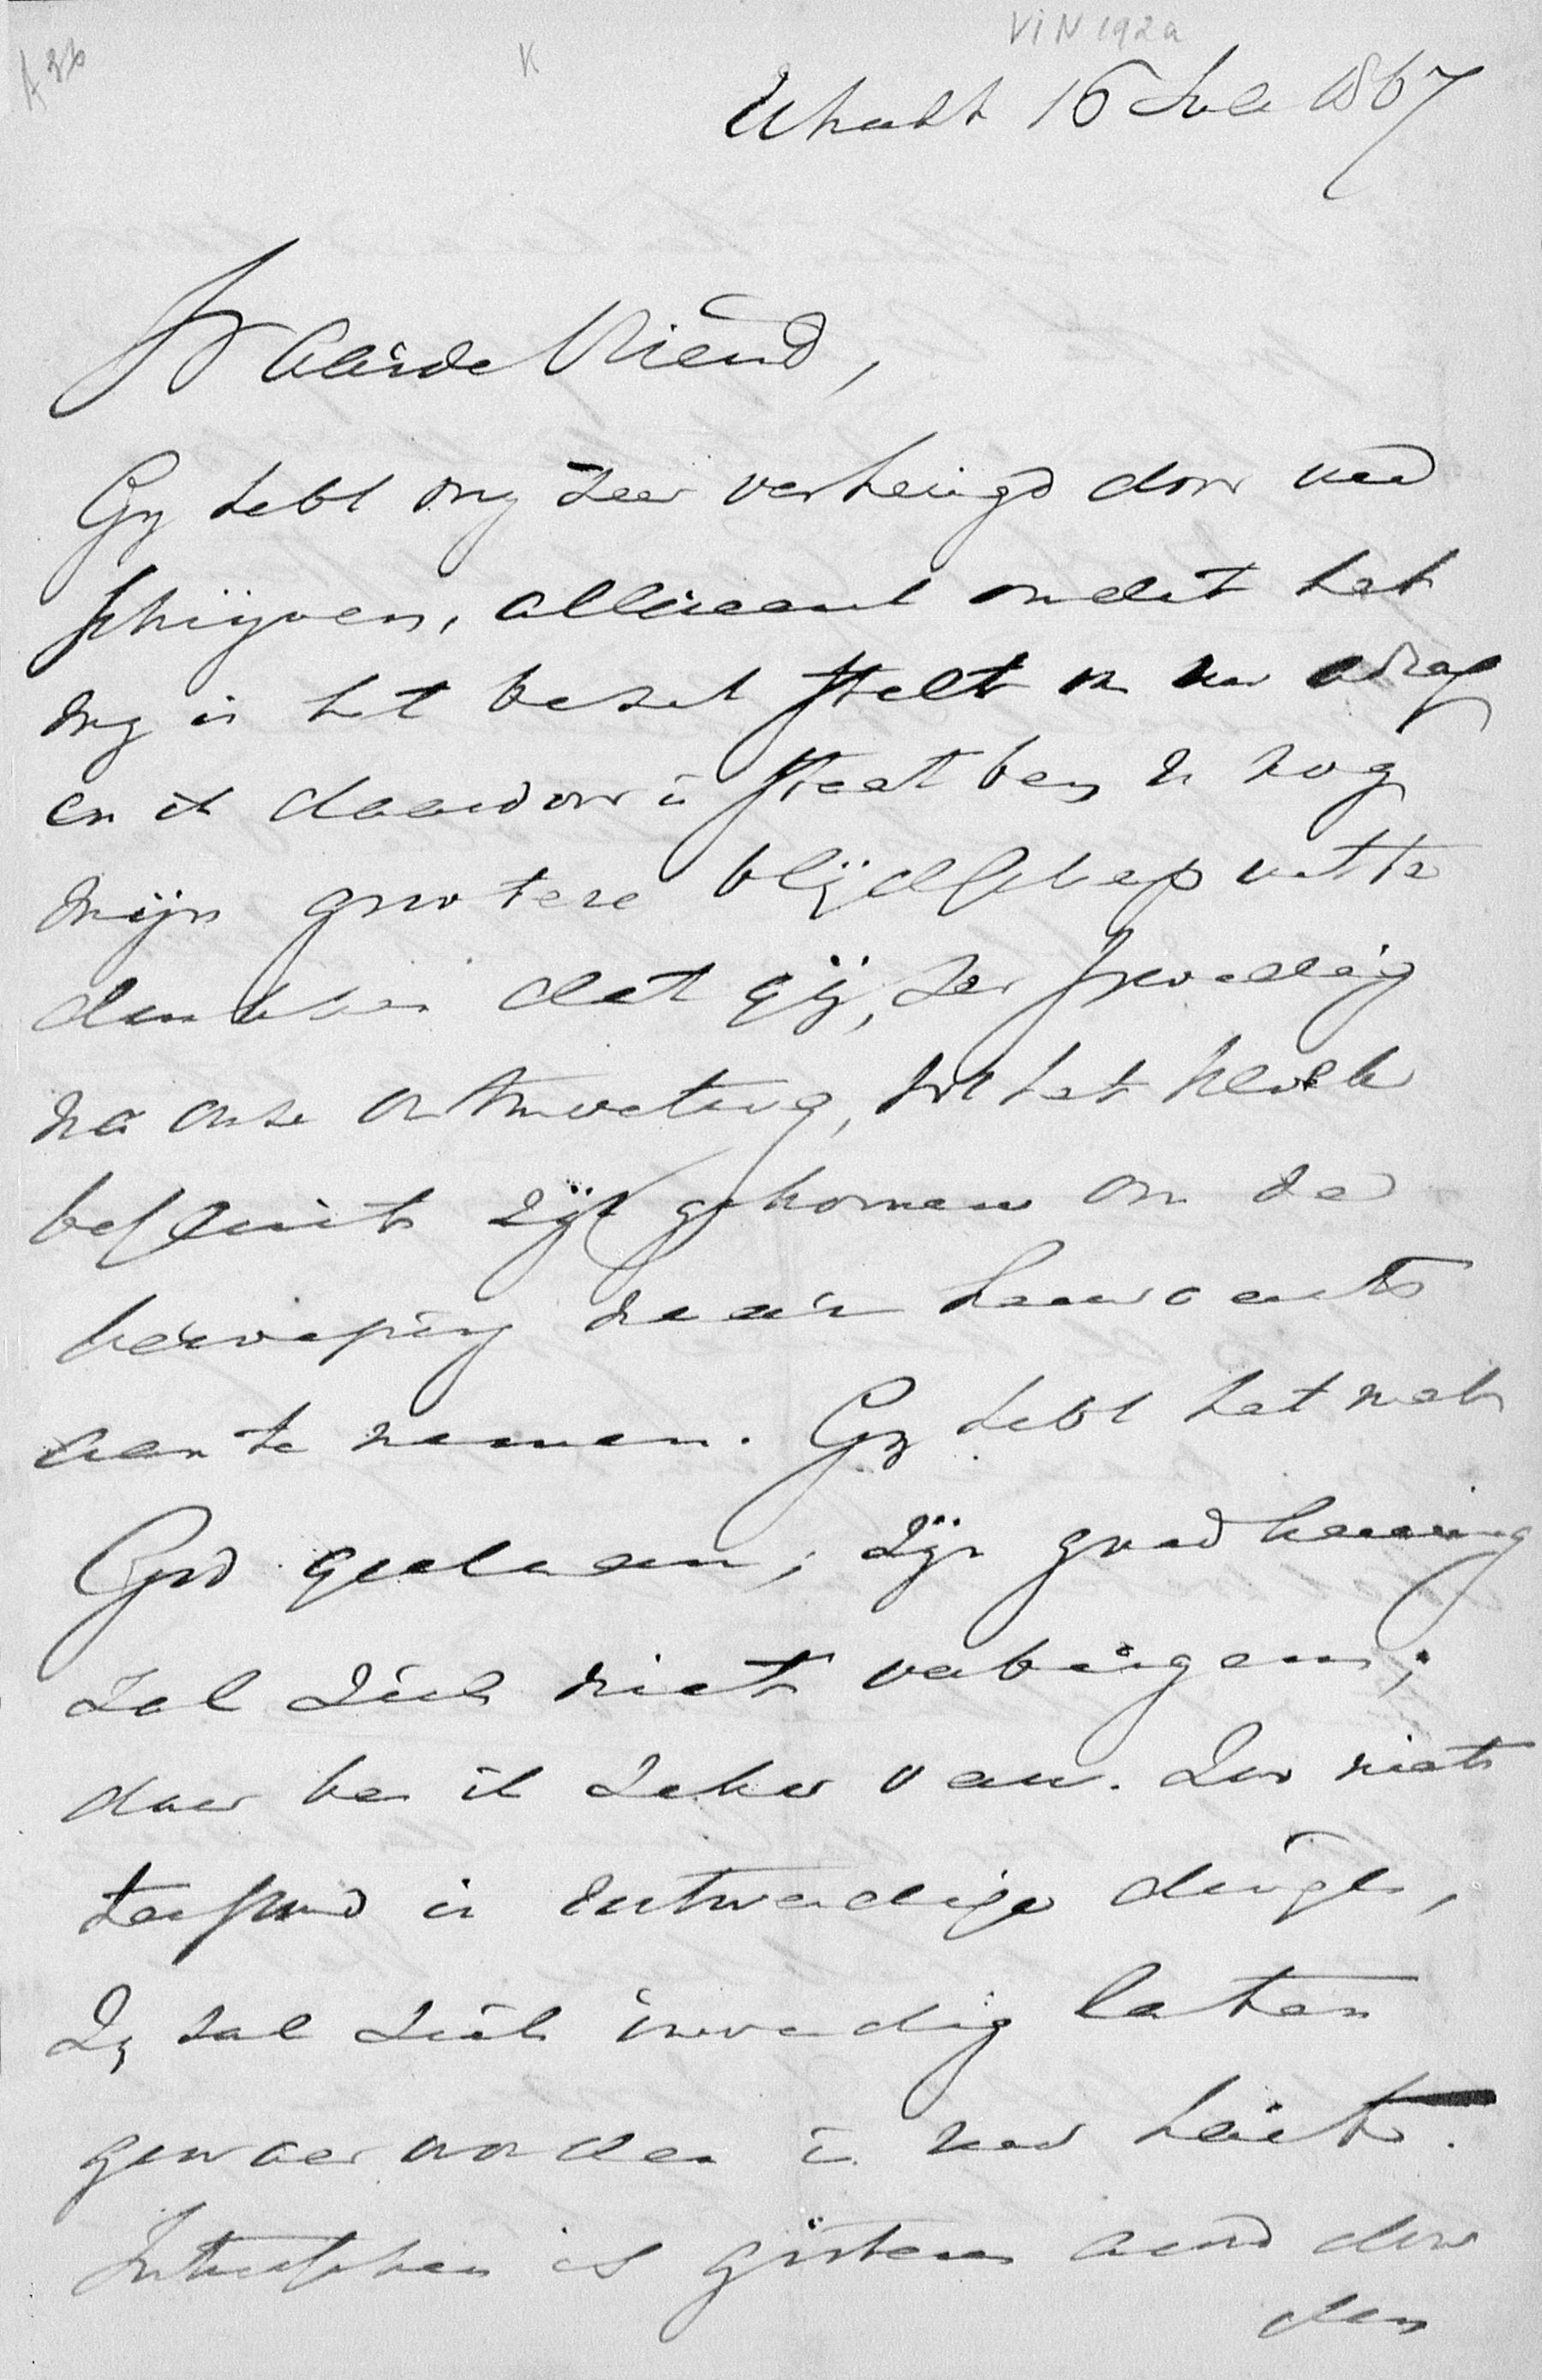 VIN 192a
K
Utrecht 16 Juli 1867
Waarde Vriend,
Gij hebt mij zeer verheugd door uw
schrijven, allereerst omdat het
mij in het bezit stelt van uw adres
en ik daardoor in staat ben u nog
mijn grootere blijdschap uit te
drukken dat gij, zoo spoedig
na onze ontmoeting, tot het kloek
besluit zijt gekomen om de
beroeping naar herwaarts
aan te nemen. Gij hebt het met
God gedaan; Zijn goedkeuring
zal zich niet verbergen;
daar ben ik zeker van. Zoo niet
terstond in uitwendige dingen,
Zij zal zich inwendig laten
gewaar worden in uw hart.
Intusschen is gisteren avond door
den